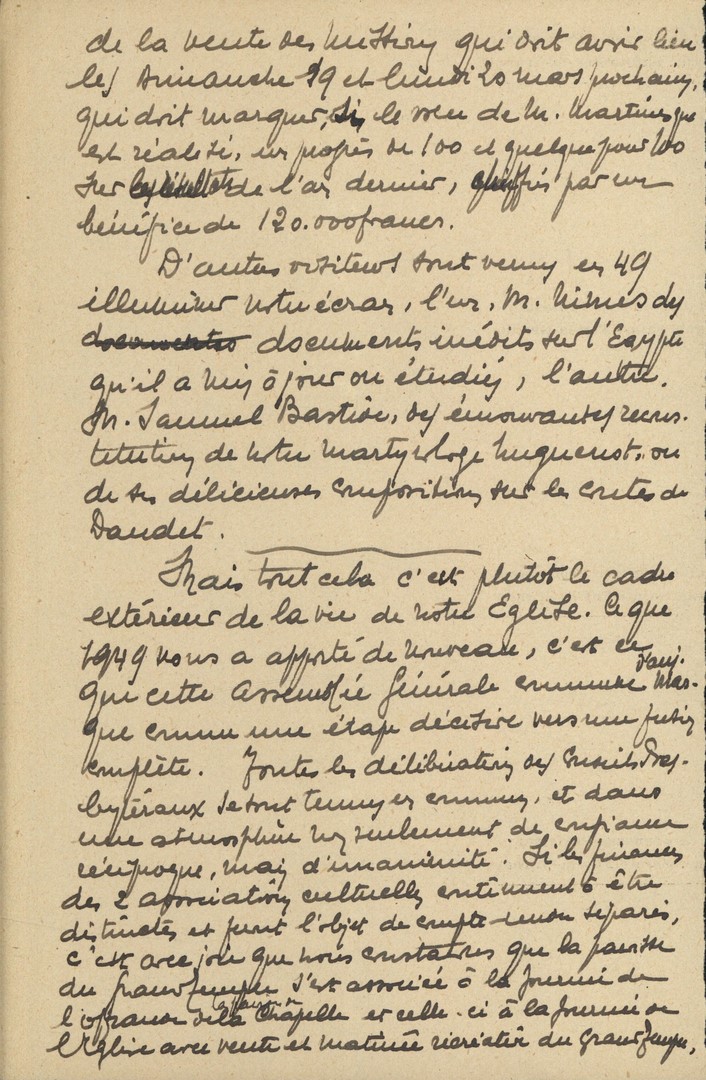 de la vente des Missions qui doit avoir lieu
les Dimanche 19 et lundi 20 mars prochains,
qui doit marquer, si, le voeu de M. Martinesque
est réalisé, un progrès de 100 et quelque pour 100
sur les résultats de l'an dernier, chiffrés par un
bénéfice de 120.000 francs.
D'autres visiteurs sont venus en 49
illuminer notre écran, l'un, M. des
documents documents inédits sur l'Egypte
qu'il a mis à jour ou étudiés, l'autre,
M. Samuel Bastide, des émouvantes recons-
titutions de notre martyrologe huguenot, ou
de ses délicieuses compositions sur les contes de
Daudet.
Mais tout cela c'est plutôt le cadre
extérieur de la vie de notre Eglise. Ce que
1949 nous a apporté de nouveau, c'est ce
d'auj.
que cette Assemblée Générale commune mar-
que comme une étape décisive vers une fusion
complète. Toutes les délibérations des Conseils Pres-
bytéraux se sont tenues en commun, et dans
une atmosphère non seulement de confiance
réciproque, mais d'unanimité. Si les finances
des 2 associations cultuelles continuent à être
distinctes et font l'objet de compte-rendu séparés,
c'est avec joie que nous constatons que la paroisse
du Grand Temple s'est associée à la Journée de
l'offrande de la Chapelle et celle-ci à la Journée de
l'Eglise avec vente et matinée récréative du Grand Temple,